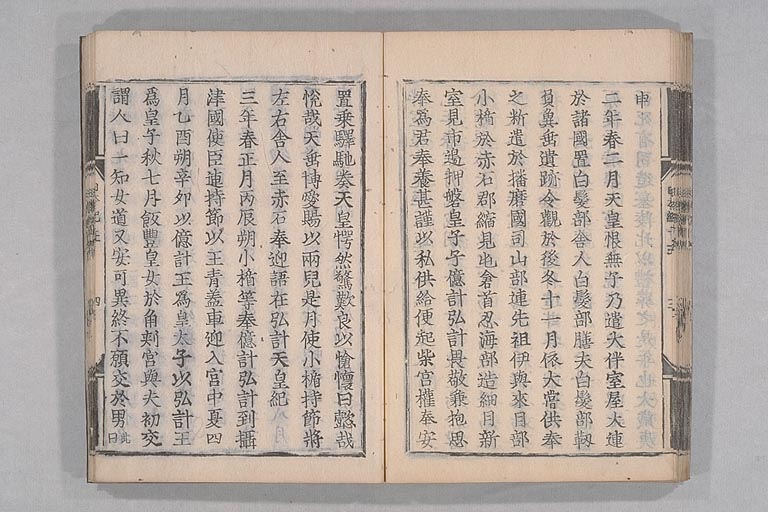 申
二年春二月天皇恨無子乃遣大伴室屋大連
於諸國置白髮部舍人白髮部膳夫白髮部靫
負冀垂遺跡令觀於後冬十一月依大嘗供奉
之料遣於播磨國司山部連先祖伊與來目部
小楯於赤石郡縮見屯倉首忍海部造細目新
室見市邊押磐皇子子億計弘計畏敬兼抱思
奉為君奉養甚謹以私供給便起柴宮權奉安
置乘驛馳奏天皇愕然驚歎良以愴懷曰懿哉
悅哉天垂博愛賜以兩兒是月使小楯持節將
左右舍人至赤石奉迎語在弘計天皇紀
三年春正月丙辰朔小楯等奉億計弘計到攝
津國使臣連持節以王青蓋車迎入宮中夏四
月乙酉朔辛卯以億計王為皇太子以弘計王
為皇子秋七月飯豐皇女於角刺宮與夫初交
謂人曰一知女道又安可異終不願交於男此曰